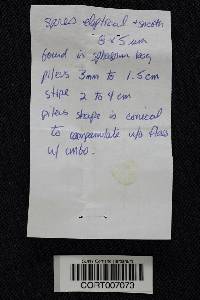 spores elliptical + smooth
8 x 5 um
found in sphagnum bog
pileus 3mm to 1.5cm
stipe 2 to 4 cm
pileus shape is conical
to campanulate w/o
w/ umbo.
SUNY Cortland Herbarium
CORT007073